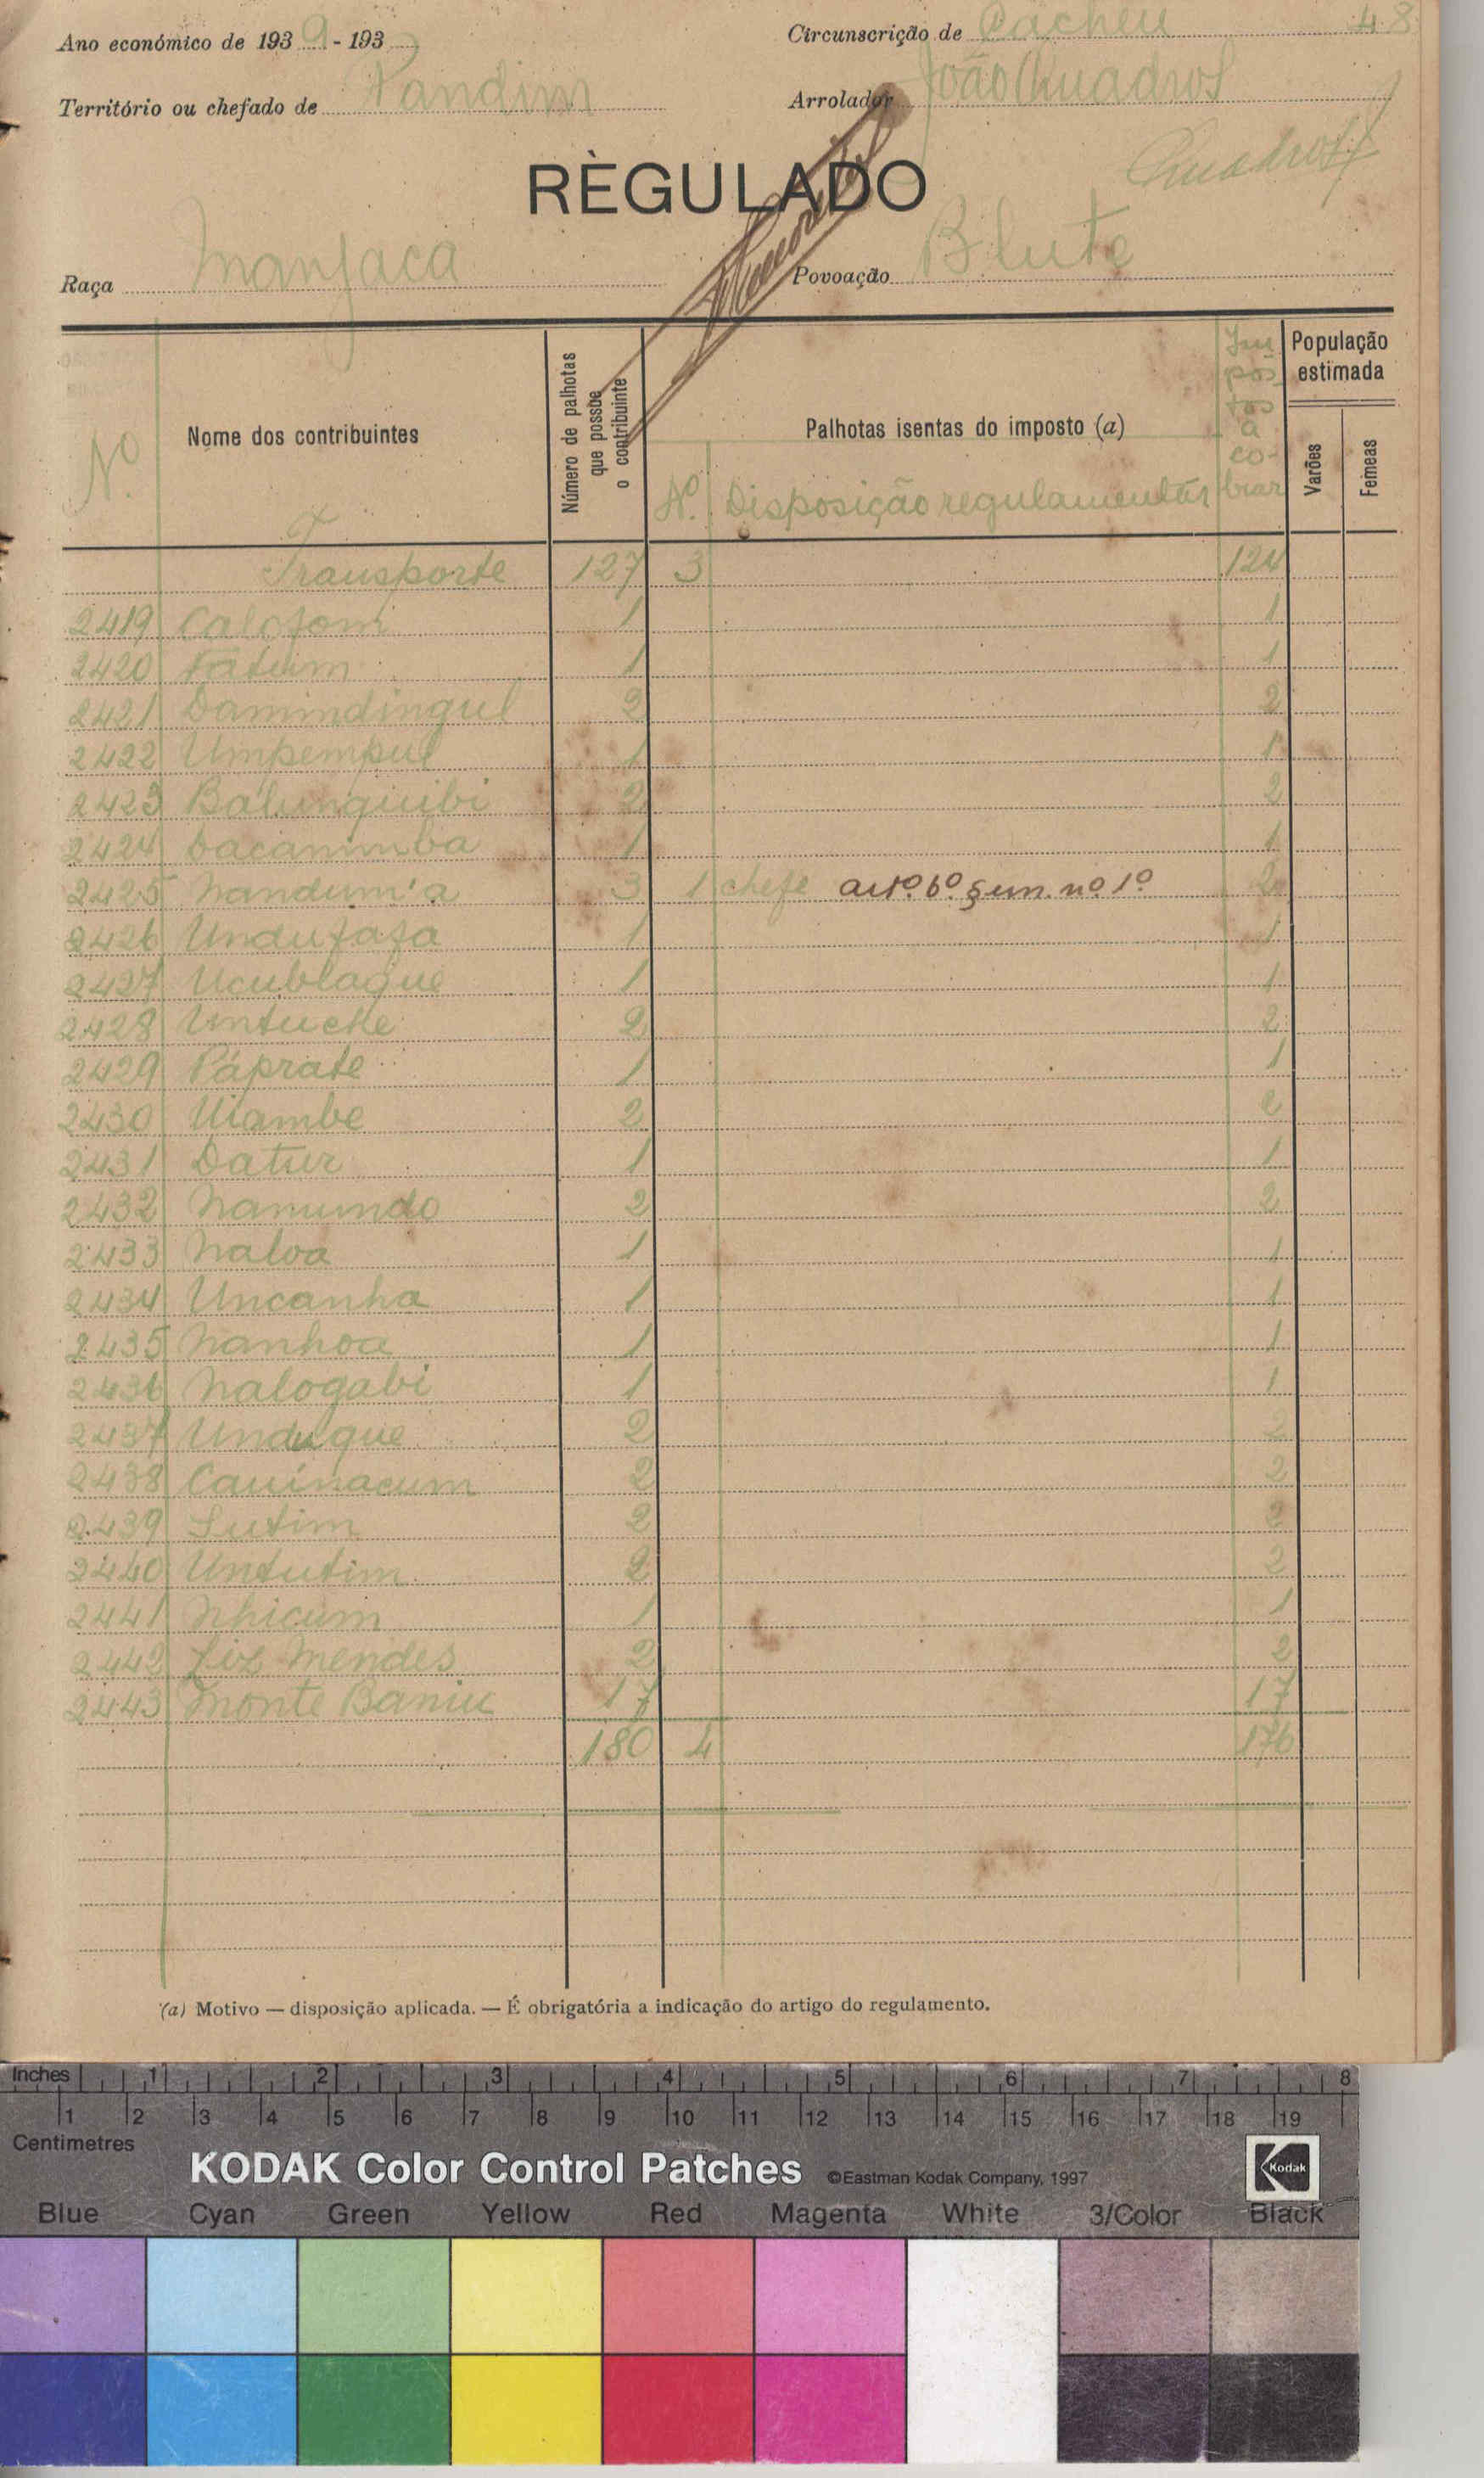 48
Ano económico de 1939 - 193
Circunscrição de Cacheu
Território ou chefado de Pandim
Arrolador João Quadros
Quadros
RÈGULADO
Raça Manjaca
Povoação Blute
Nº
Nome dos contribuintes
Número de palhotas que possõe o contribuinte
Palhotas isentas do imposto (a)
Nº. Disposição regulamentar
Im pos tos a co- brar
População estimada
Varões
Femeas
Transporte 127 3 124
2419 Calofom 1 1
2420 Fatum 1 1
2421 Damindingul 2 2
2422 Umpempul 1 1
2423 Balunguibi 2 2
2424 Dacanimba 1 1
2425 Nandum'a 3 1 chefe artº. 6º. §un. nº 1º 2
2426 Undufafa 1 1
2427 Ucublague 1 1
2428 Untuche 2 2
2429 Páprate 1 1
2430 Uiambe 2 2
2431 Datur 1 1
2432 Namundo 2 2
2433 Naloa 1 1
2434 Uncanha 1 1
2435 Nanhoa 1 1
2436 Nalogabi 1 1
2437 Undugue 2 2
2438 Cauinacum 2 2
2439 Sutim 2 2
2440 Untutim 2 2
2441 Nhicum 1 1
2442 Liz Mendes 2 2
2443 Monte Baniu 17 17
180 4 176
(a) Motivo — disposição aplicada. — É obrigatória a indicação do artigo do regulamento.
Inches 1 2 3 4 5 6 7 8
1 2 3 4 5 6 7 8 9 10 11 12 13 14 15 16 17 18 19
Centimetres
KODAK Color Control Patches ©Eastman Kodak Company, 1997 Kodak
Blue Cyan Green Yellow Red Magenta White 3/Color Black